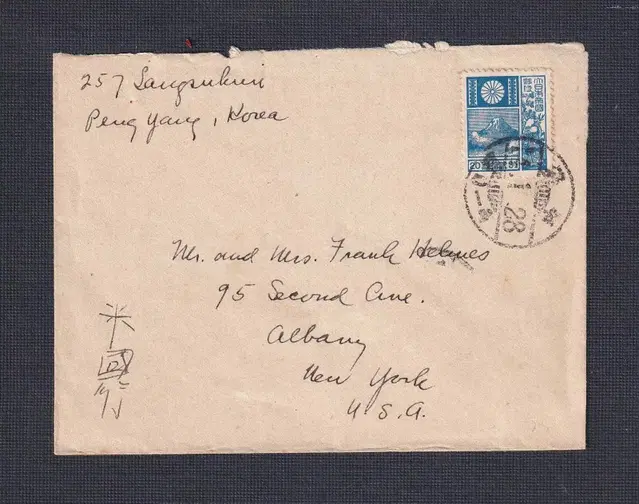 257 Sangsukuri
Peng Yang, Korea
20 銭
28
Mr. and Mrs. Frank Helmes
95 Second Ave.
Albany
New York
U.S.A.
米
國
行